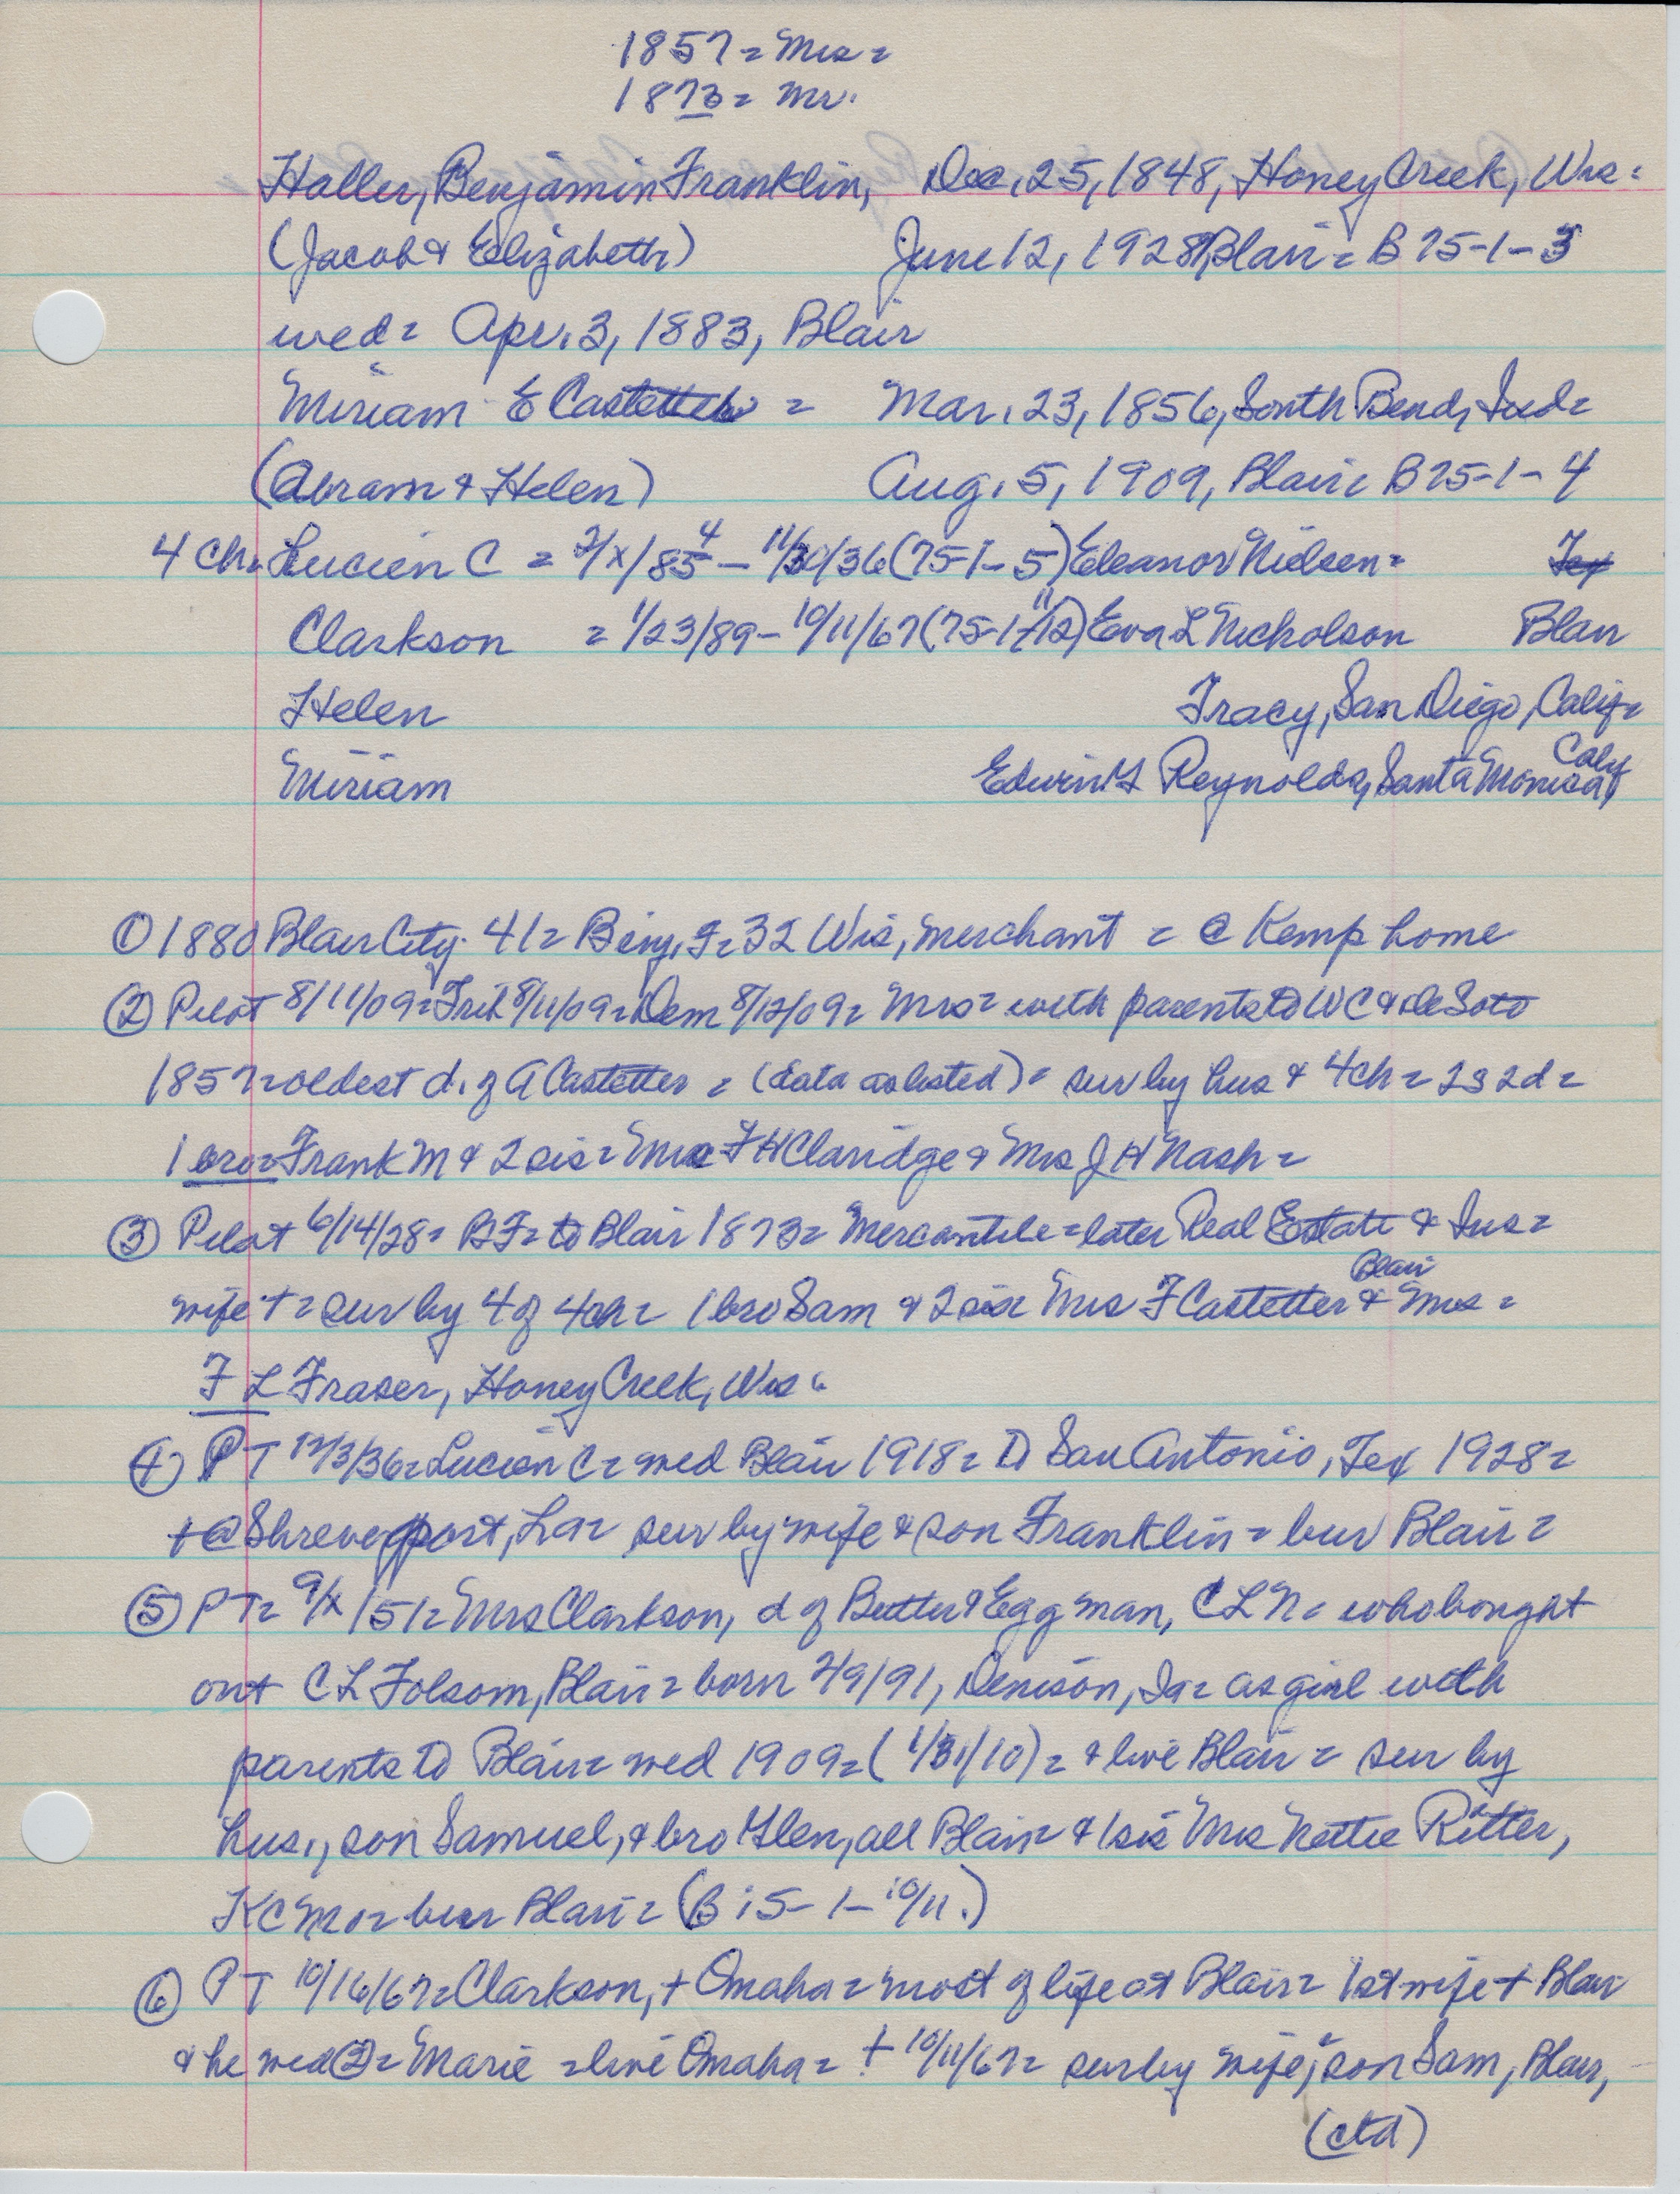 1857 = Mrs =
1873 = Mr.
Haller, Benjamin Franklin, Dec. 25, 1848, Honey Creek, Wis =
(Jacob & Elizabeth) June 12, 1928, Blair = B 75-1-3
wed = Apr. 3, 1883, Blair
Miriam E Castetter = Mar. 23, 1856, South Bend, Ind =
(Abram & Helen) Aug. 5, 1909, Blair = B 75-1-4
4 ch = Lucien C = 2/x/85 4 - 11/30/36 (75-1-5) Eleanor Nielsen = Tex
Clarkson = 1/23/89 - 10/11/67 (75-1-11/12) Eva L Nicholson Blair
Helen Tracy, San Diego, Calif =
Miriam Edwin G Reynolds, Santa Monica, Calif
① 1880 Blair City. 41 = Benj. F = 32 Wis, merchant = @ Kemp home
② Pilot 8/11/09 = Trib 8/11/09 = Dem 8/12/09 = Mrs = with parents to WC & DeSoto
1857 = oldest d. of A Castetter = (data as listed) = sur by hus & 4 ch = 2s 2d =
1 bro = Frank M & 2 sis = Mrs F H Claridge & Mrs J H Nash =
③ Pilot 6/14/28 = BF = to Blair 1873 = Mercantile = later Real Estate & Ins =
wife + = sur by 4 of 4 ch = 1 bro Sam & 2 sis Mrs F Castetter Blair & Mrs =
F L Fraser, Honey Creek, Wis.
④ PT 12/3/36 = Lucien C = wed Blair 1918 = to San Antonio, Tex 1928 =
+ @ Shreveport, La = sur by wife & son Franklin = bur Blair =
⑤ PT = 9/x/51 = Mrs Clarkson, d of Butter & Egg man, C L N = who bought
out C L Folsom, Blair = born 2/9/91, Denison, Ia = as girl with
parents to Blair = wed 1909 = (1/31/10) = & live Blair = sur by
hus., son Samuel, & bro Glen, all Blair = & 1 sis Mrs Nettie Ritter,
KC Mo = bur Blair = (B 75-1-10/11.)
⑥ PT 10/16/67 = Clarkson, + Omaha = most of life at Blair = 1st wife + Blair
& he wed ② = Marie = live Omaha = + 10/11/67 = sur by wife, son Sam, Blair,
(ctd)